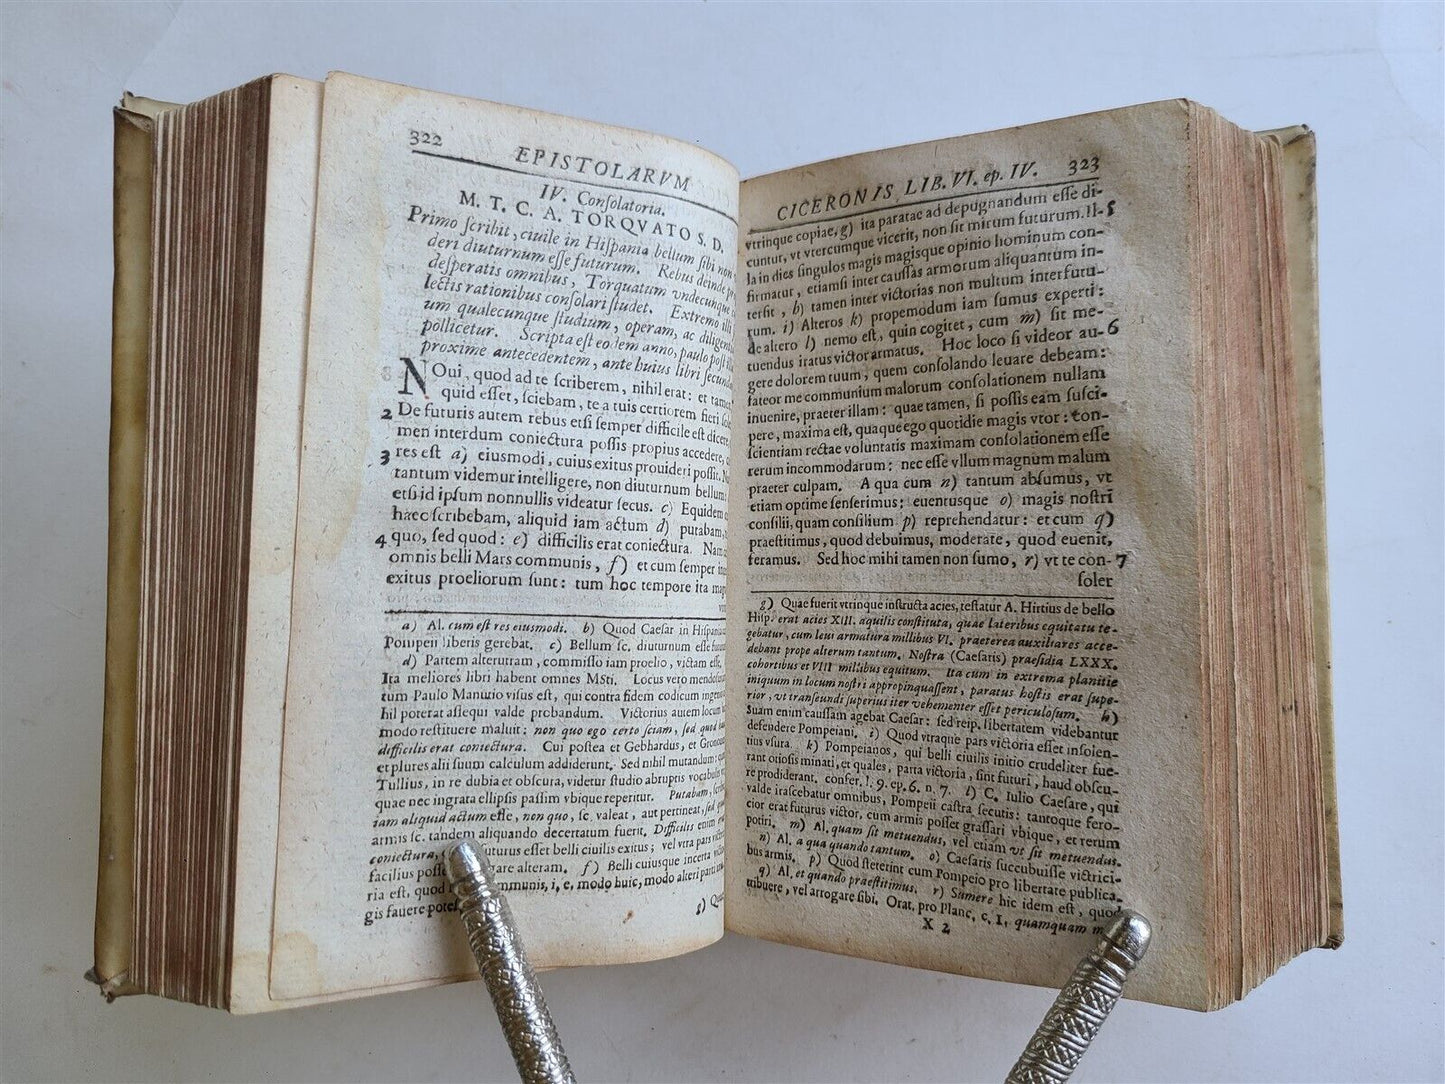 322
EPISTOLARVM
IV. Conſolatoria.
M. T. C. A. TORQVATO S. D.
Primo ſcribit, ciuile in Hiſpania bellum ſibi non
deri diuturnum eſſe futurum. Rebus deinde
deſperatis omnibus, Torquatum vndecunque
lectis rationibus conſolari ſtudet. Extremo illi
um qualecunque ſtudium, operam, ac diligen
pollicetur. Scripta eſt eodem anno, paulo poſt
proxime antecedentem, ante huius libri ſecund
NOui, quod ad te ſcriberem, nihil erat: et tamen
quid eſſet, ſciebam, te a tuis certiorem fieri
2 De futuris autem rebus etſi ſemper difficile eſt dicere,
men interdum coniectura poſſis propius accedere,
3 res eſt a) eiusmodi, cuius exitus prouideri poſſit.
tantum videmur intelligere, non diuturnum bellum
etſi id ipſum nonnullis videatur ſecus. c) Equidem
haec ſcribebam, aliquid iam actum d) putabam,
4 quo, ſed quod: e) difficilis erat coniectura. Nam
omnis belli Mars communis, f) et cum ſemper
exitus proeliorum ſunt: tum hoc tempore ita
a) Al. cum eſt res eiusmodi. b) Quod Caeſar in Hiſpania
Pompeii liberis gerebat. c) Bellum ſc. diuturnum eſſe
d) Partem alterutram, commiſſo iam proelio, victam eſſe.
Ita meliores libri habent omnes MSti. Locus vero
tum Paulo Manutio viſus eſt, qui contra fidem codicum
hil poterat aſſequi valde probandum. Victorius autem locum
modo reſtituere maluit: non quo ego certo ſciam, ſed quod
difficilis erat coniectura. Cui poſtea et Gebhardus, et
et plures alii ſuum calculum addiderunt. Sed nihil mutandum:
Tullius, in re dubia et obſcura, videtur ſtudio abruptis
quae nec ingrata ellipſis paſſim vbique reperitur. Putabam,
iam aliquid actum eſſe, non quo, ſc. valeat, aut pertineat,
armis ſc. tandem aliquando decertatum fuerit. Difficilis
coniectura, uturus eſſet belli ciuilis exitus; vel vtra pars
facilius poſſe gare alteram. f) Belli cuiusque incerta
ria eſt, quod mmunis, i, e, modo huic, modo alteri parti
gis fauere poteſ
g)
CICERONIS LIB. VI. ep. IV. 323
vtrinque copiae, g) ita paratae ad depugnandum eſſe di-
cuntur, vt vtercumque vicerit, non ſit mirum futurum. Il- 5
la in dies ſingulos magis magisque opinio hominum con-
firmatur, etiamſi inter cauſſas armorum aliquantum in-
terſit, h) tamen inter victorias non multum interfutu-
rum. i) Alteros k) propemodum iam ſumus experti:
de altero l) nemo eſt, quin cogitet, cum m) ſit me-
tuendus iratus victor armatus. Hoc loco ſi videor au- 6
gere dolorem tuum, quem conſolando leuare debeam:
fateor me communium malorum conſolationem nullam
inuenire, praeter illam: quae tamen, ſi poſſis eam ſuſci-
pere, maxima eſt, quaque ego quotidie magis vtor: con-
ſcientiam rectae voluntatis maximam conſolationem eſſe
rerum incommodarum: nec eſſe vllum magnum malum
praeter culpam. A qua cum n) tantum abſumus, vt
etiam optime ſenſerimus; euentusque o) magis noſtri
conſilii, quam conſilium p) reprehendatur: et cum q)
praeſtitimus, quod debuimus, moderate, quod euenit,
feramus. Sed hoc mihi tamen non ſumo, r) vt te con- 7
ſoler
g) Quae fuerit vtrinque inſtructa acies, teſtatur A. Hirtius de bello
Hiſp. erat acies XIII. aquilis conſtituta, quae lateribus equitatu te-
gebatur, cum leui armatura millibus VI. praeterea auxiliares acce-
debant prope alterum tantum. Noſtra (Caeſaris) praeſidia LXXX.
cohortibus et VIII millibus equitum. Ita cum in extrema planitie
iniquum in locum noſtri appropinquaſſent, paratus hoſtis erat ſupe-
rior, vt tranſeundi ſuperius iter vehementer eſſet periculoſum. h)
Suam enim cauſſam agebat Caeſar: ſed reip. libertatem videbantur
defendere Pompeiani. i) Quod vtraque pars victoria eſſet inſolen-
tius vſura. k) Pompeianos, qui belli ciuilis initio crudeliter fue-
rant otioſis minati, et quales, parta victoria, ſint futuri, haud obſcu-
re prodiderant. confer. l. 9. ep. 6. n. 7. l) C. Iulio Caeſare, qui
valde iraſcebatur omnibus, Pompeii caſtra ſecutis: tantoque fero-
cior erat futurus victor, cum armis poſſet graſſari vbique, et rerum
potiri. m) Al. quam ſit metuendus, vel etiam vt ſit metuendus.
n) Al. a qua quando tantum. o) Caeſaris ſuccubuiſſe victrici-
bus armis. p) Quod ſteterint cum Pompeio pro libertate publica.
q) Al. et quando praeſtitimus. r) Sumere hic idem eſt, quod
tribuere, vel arrogare ſibi. Orat. pro Planc. c. 1. quamquam m
X 2